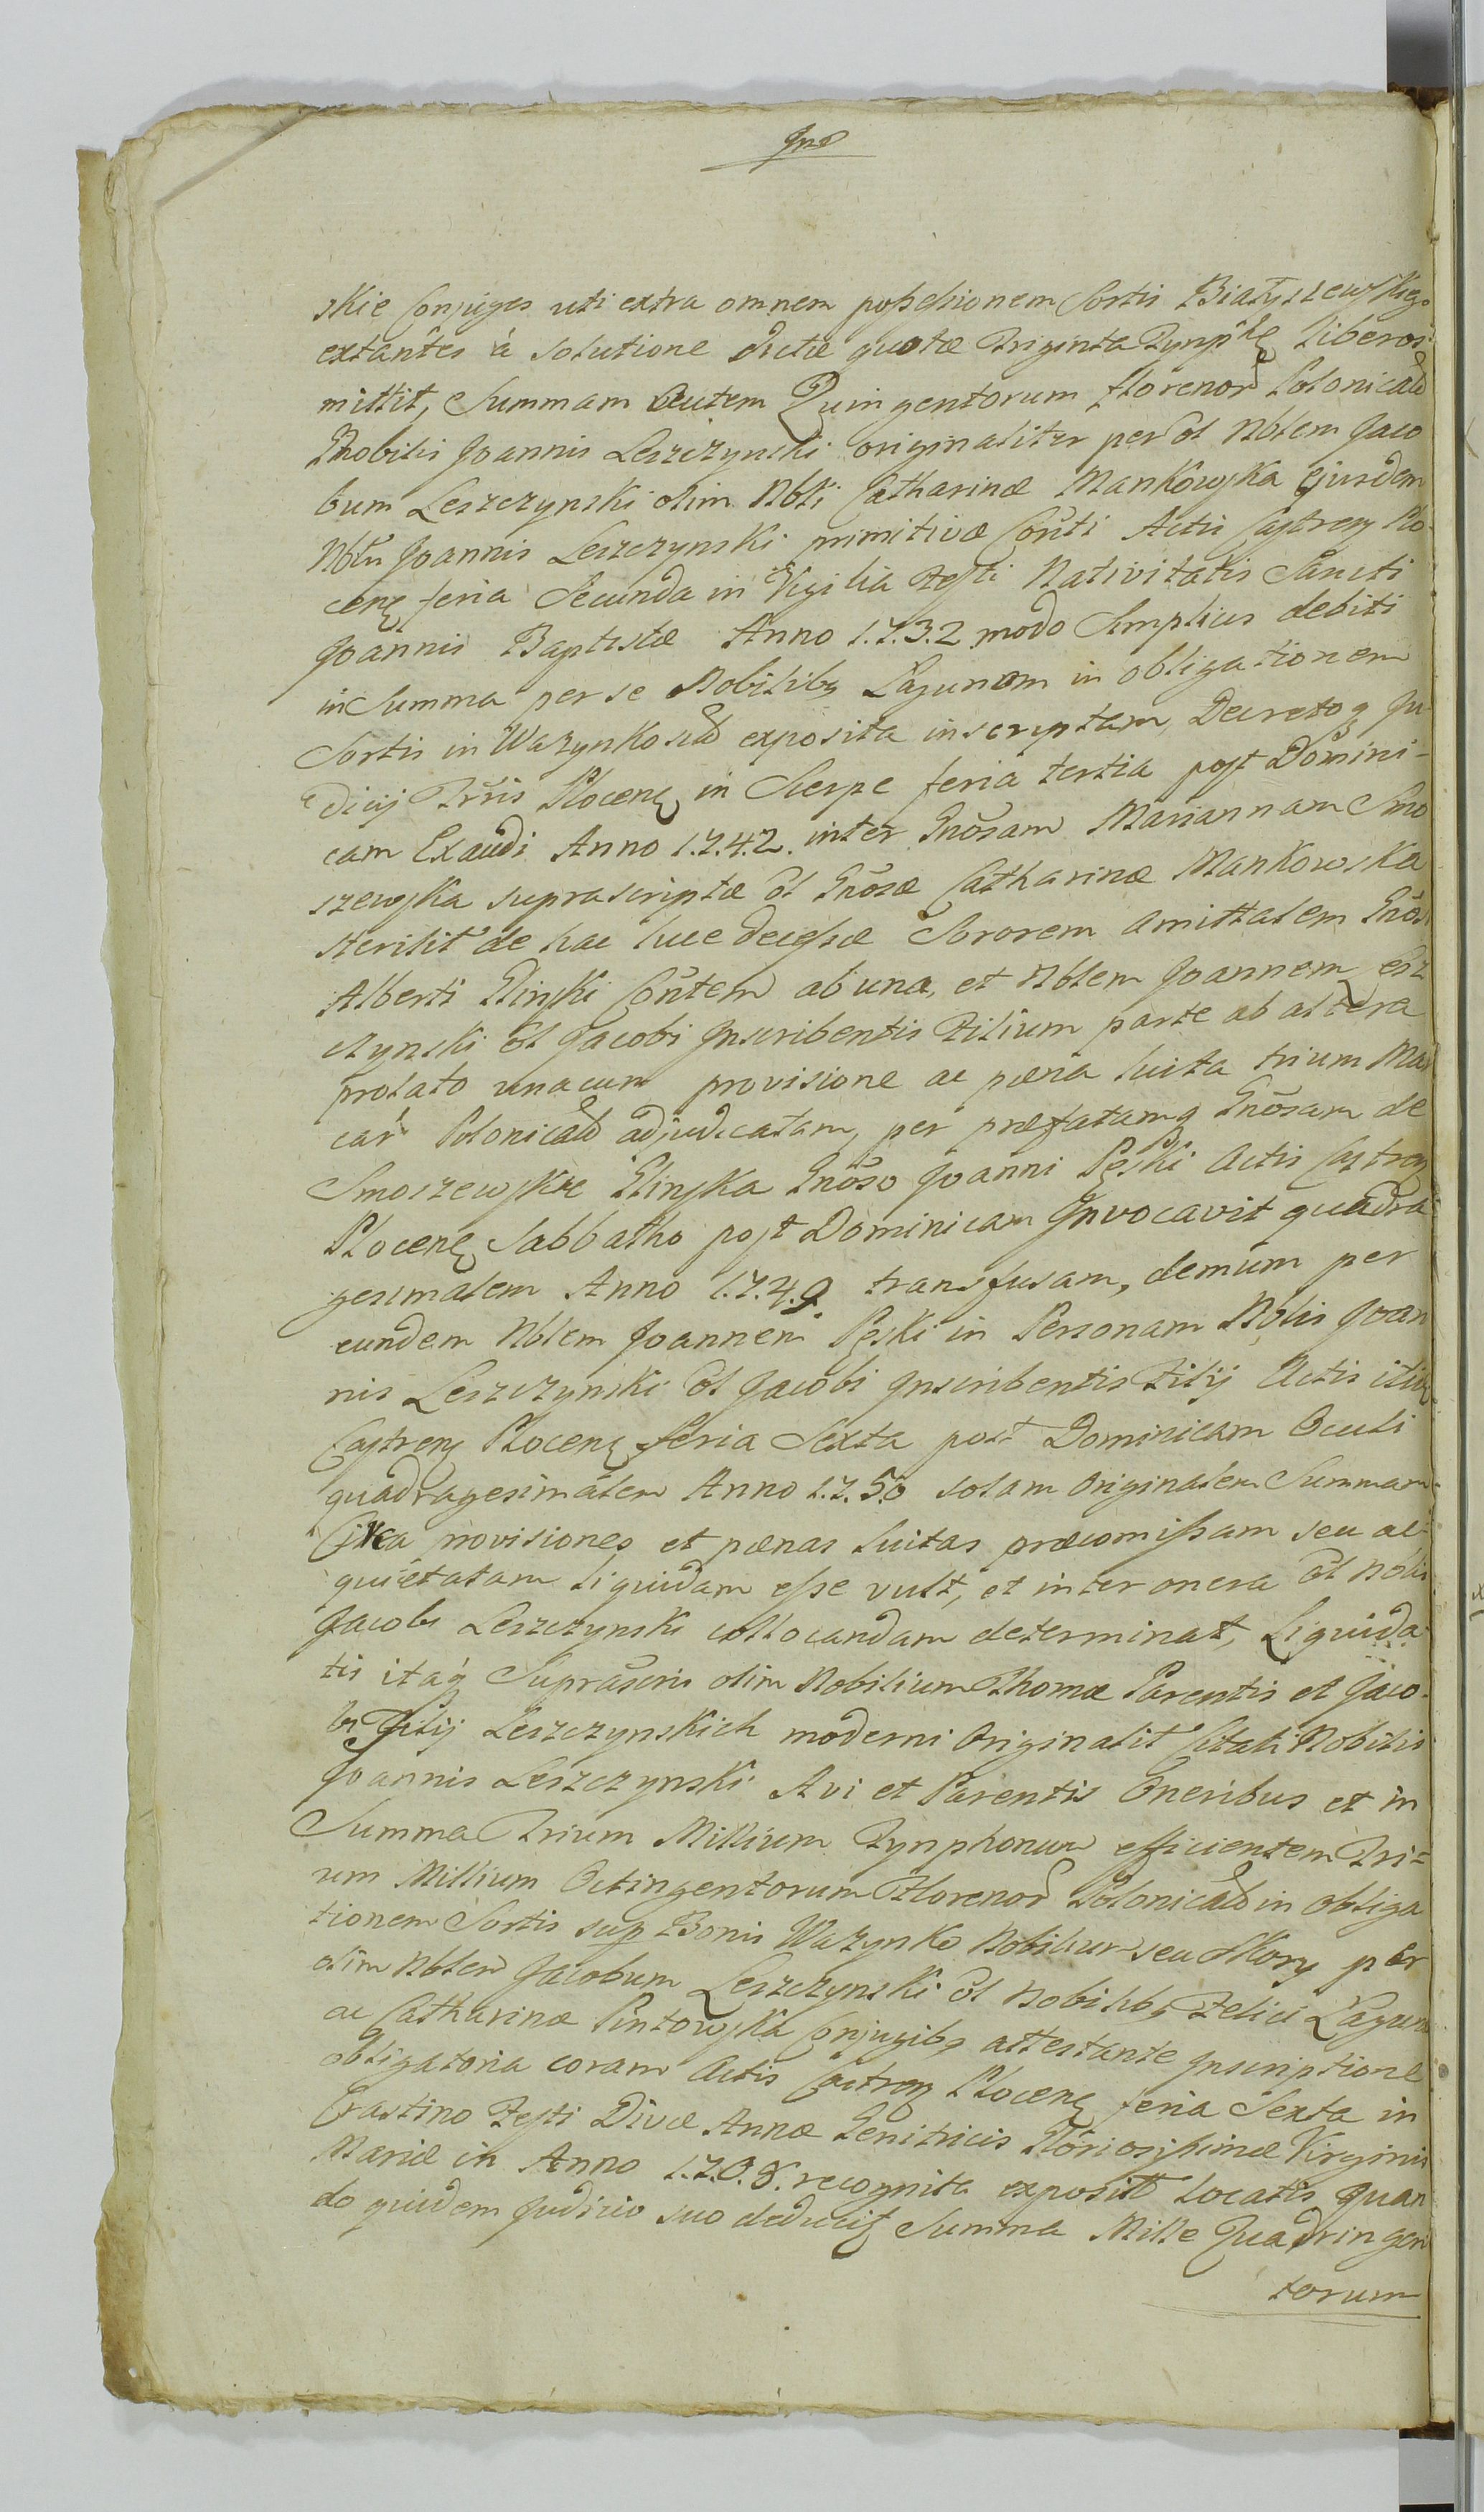 skie Conjuges uti extra omnem possessionem Sortis Białyszewskie
extantes à solutione dictæ quotæ Triginta Tynph Liberos
mittit, Summam autem Quingentorum florenor Polonical
Nobilis Joannis Leszczynski originaliter per ol Nblem Jaco
bum Leszczynski olim Nbli Catharinæ Mankowska ejusdem
Nblis Joannis Leszczynski primitivæ Conti Actis Castren Plo-
cen feria Secunda in Vigilia Festi Nativitatis Sancti
Joannis Baptistæ Anno 1.7.3.2 modo Simplicis debiti
in Summa per se Nobilibq Łagunom in obligationem
Sortis in Wazynko exposita inscriptam, Decretoq Ju-
dicij Trris Plocen in Sierpc feria tertia post Domini-
cam Exaudi Anno 1.7.4.2. inter Gnosam Mariannam Smo
szewska suprascriptæ ol Gnosæ Catharinæ Mankowska
sterilit de hac luce decessæ Sororem amittalem Gnosi
Alberti Glinski Contem ab una, et Nblem Joannem Lesz
czynski ol Jacobi Inscribentis Filium parte ab altera
prolato unacum provisione ac pæna luita trium Mar
car Polonical adjudicatam, per præfatamq Gnosam de
Smoszewskie Glinska Gnoso Joanni Pęski Actis Castren
Plocen Sabbatho post Dominicam Invocavit quadra
gesimalem Anno 1.7.4.9. transfusam, demum per
eundem Nblem Joannem Pęski in Personam Nblis Joan
nis Leszczynski ol Jacobi Inscribentis Filij Actis itidem
Castren Plocen feria Sexta post Dominicam Oculi
quadragesimalem Anno 1.7.5.0 solam Originalem Summam
Citra provisiones et pænas luitas præcomissam seu ac-
quietatam liquidam esse vult, et inter onera ol Nblis
Jacobi Leszczynski collocandam determinat, Liquida-
tis itaq Suprascris olim Nobilium Thomæ Parentis et Jaco-
bi Filij Leszczynskich moderni Originalit Citati Nobilis
Joannis Leszczynski Avi et Parentis Oneribus et in
Summa Trium Millium Tynphonum efficientem Tri-
um Millium Octingentorum Florenor Polonical in obliga
tionem Sortis sup Bonis Wazynko Nobilium seu Skory per
olim Nblem Jacobum Leszczynski ol Nobilibq Felici Łaguna
ac Catharinæ Puntowska Conjugibq attestante Inscriptione
obligatoria coram Actis Castren Plocen feria Sexta in
Crastino Festi Divæ Annæ Genitricis Gloriosissimæ Virginis
Mariæ in Anno 1.7.0.8. recognita exposit locatis quan
do quidem Judicio suo deducit Summa Mille Quadringen
torum